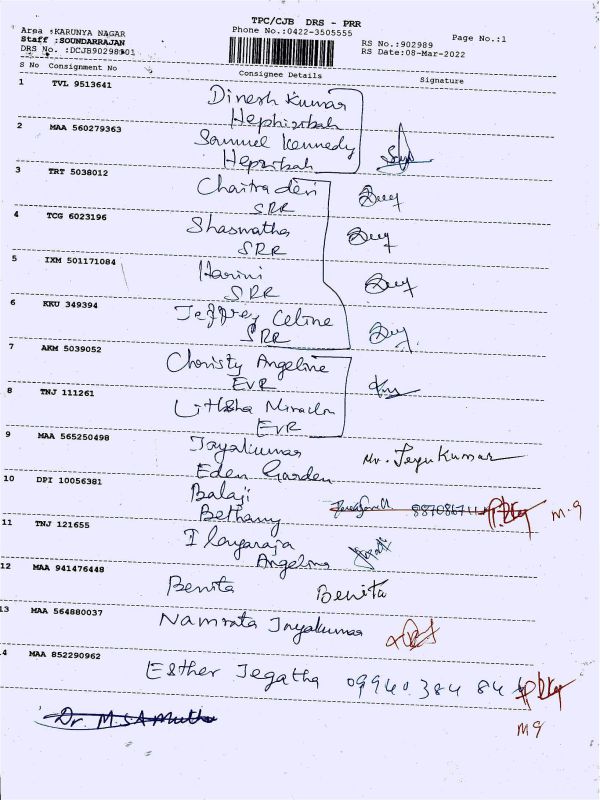 TPC/CJB DRS - PRR
Area :KARUNYA NAGAR
Phone No.:0422-3505555
Page No.:1
Staff :SOUNDARRAJAN
RS No.:902989
DRS No. :DCJB90298901
RS Date:08-Mar-2022
S No Consignment No Consignee Details Signature
1 TVL 9513641 Dinesh Kumar
Hephzibah
2 MAA 560279363 Samuel Kennedy
Hepzibah
3 TRT 5038012 Chaitra devi
SRR
4 TCG 6023196 Shaswatha
SRR
5 IXM 501171084 Harini
SRR
6 KKU 349394 Jeffrey Celine
SRR
7 AKM 5039052 Christy Angeline
EVR
8 TNJ 111261
EVR
9 MAA 565250498 Jayakumar Mr. Jeyukumar
Eden Garden
10 DPI 10056381 Balaji
Bethany M.9
11 TNJ 121655 Ilayaraja
Angelina
12 MAA 941476448 Benita Benita
13 MAA 564880037 Namrata Jayakumar
14 MAA 852290962 Esther Jegatha 09940 384 84
M9
Dr. M.S.A Muthu